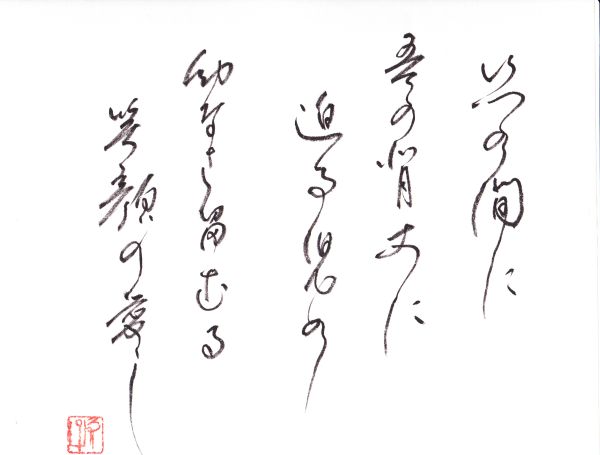 いつの間に
吾の背丈に
迫る児の
幼なさ留むる
笑顔の愛し